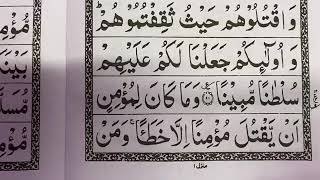 وَاقْتُلُوْهُمْ حَيْثُ ثَقِفْتُمُوْهُمْ ؕ
وَاُولٰٓئِكُمْ جَعَلْنَا لَكُمْ عَلَيْهِمْ
سُلْطٰنًا مُّبِيْنًا ۟ وَمَا كَانَ لِمُؤْمِنٍ
اَنْ يَّقْتُلَ مُؤْمِنًا اِلَّا خَطَـًٔا ۚ وَمَنْ
منزل ١